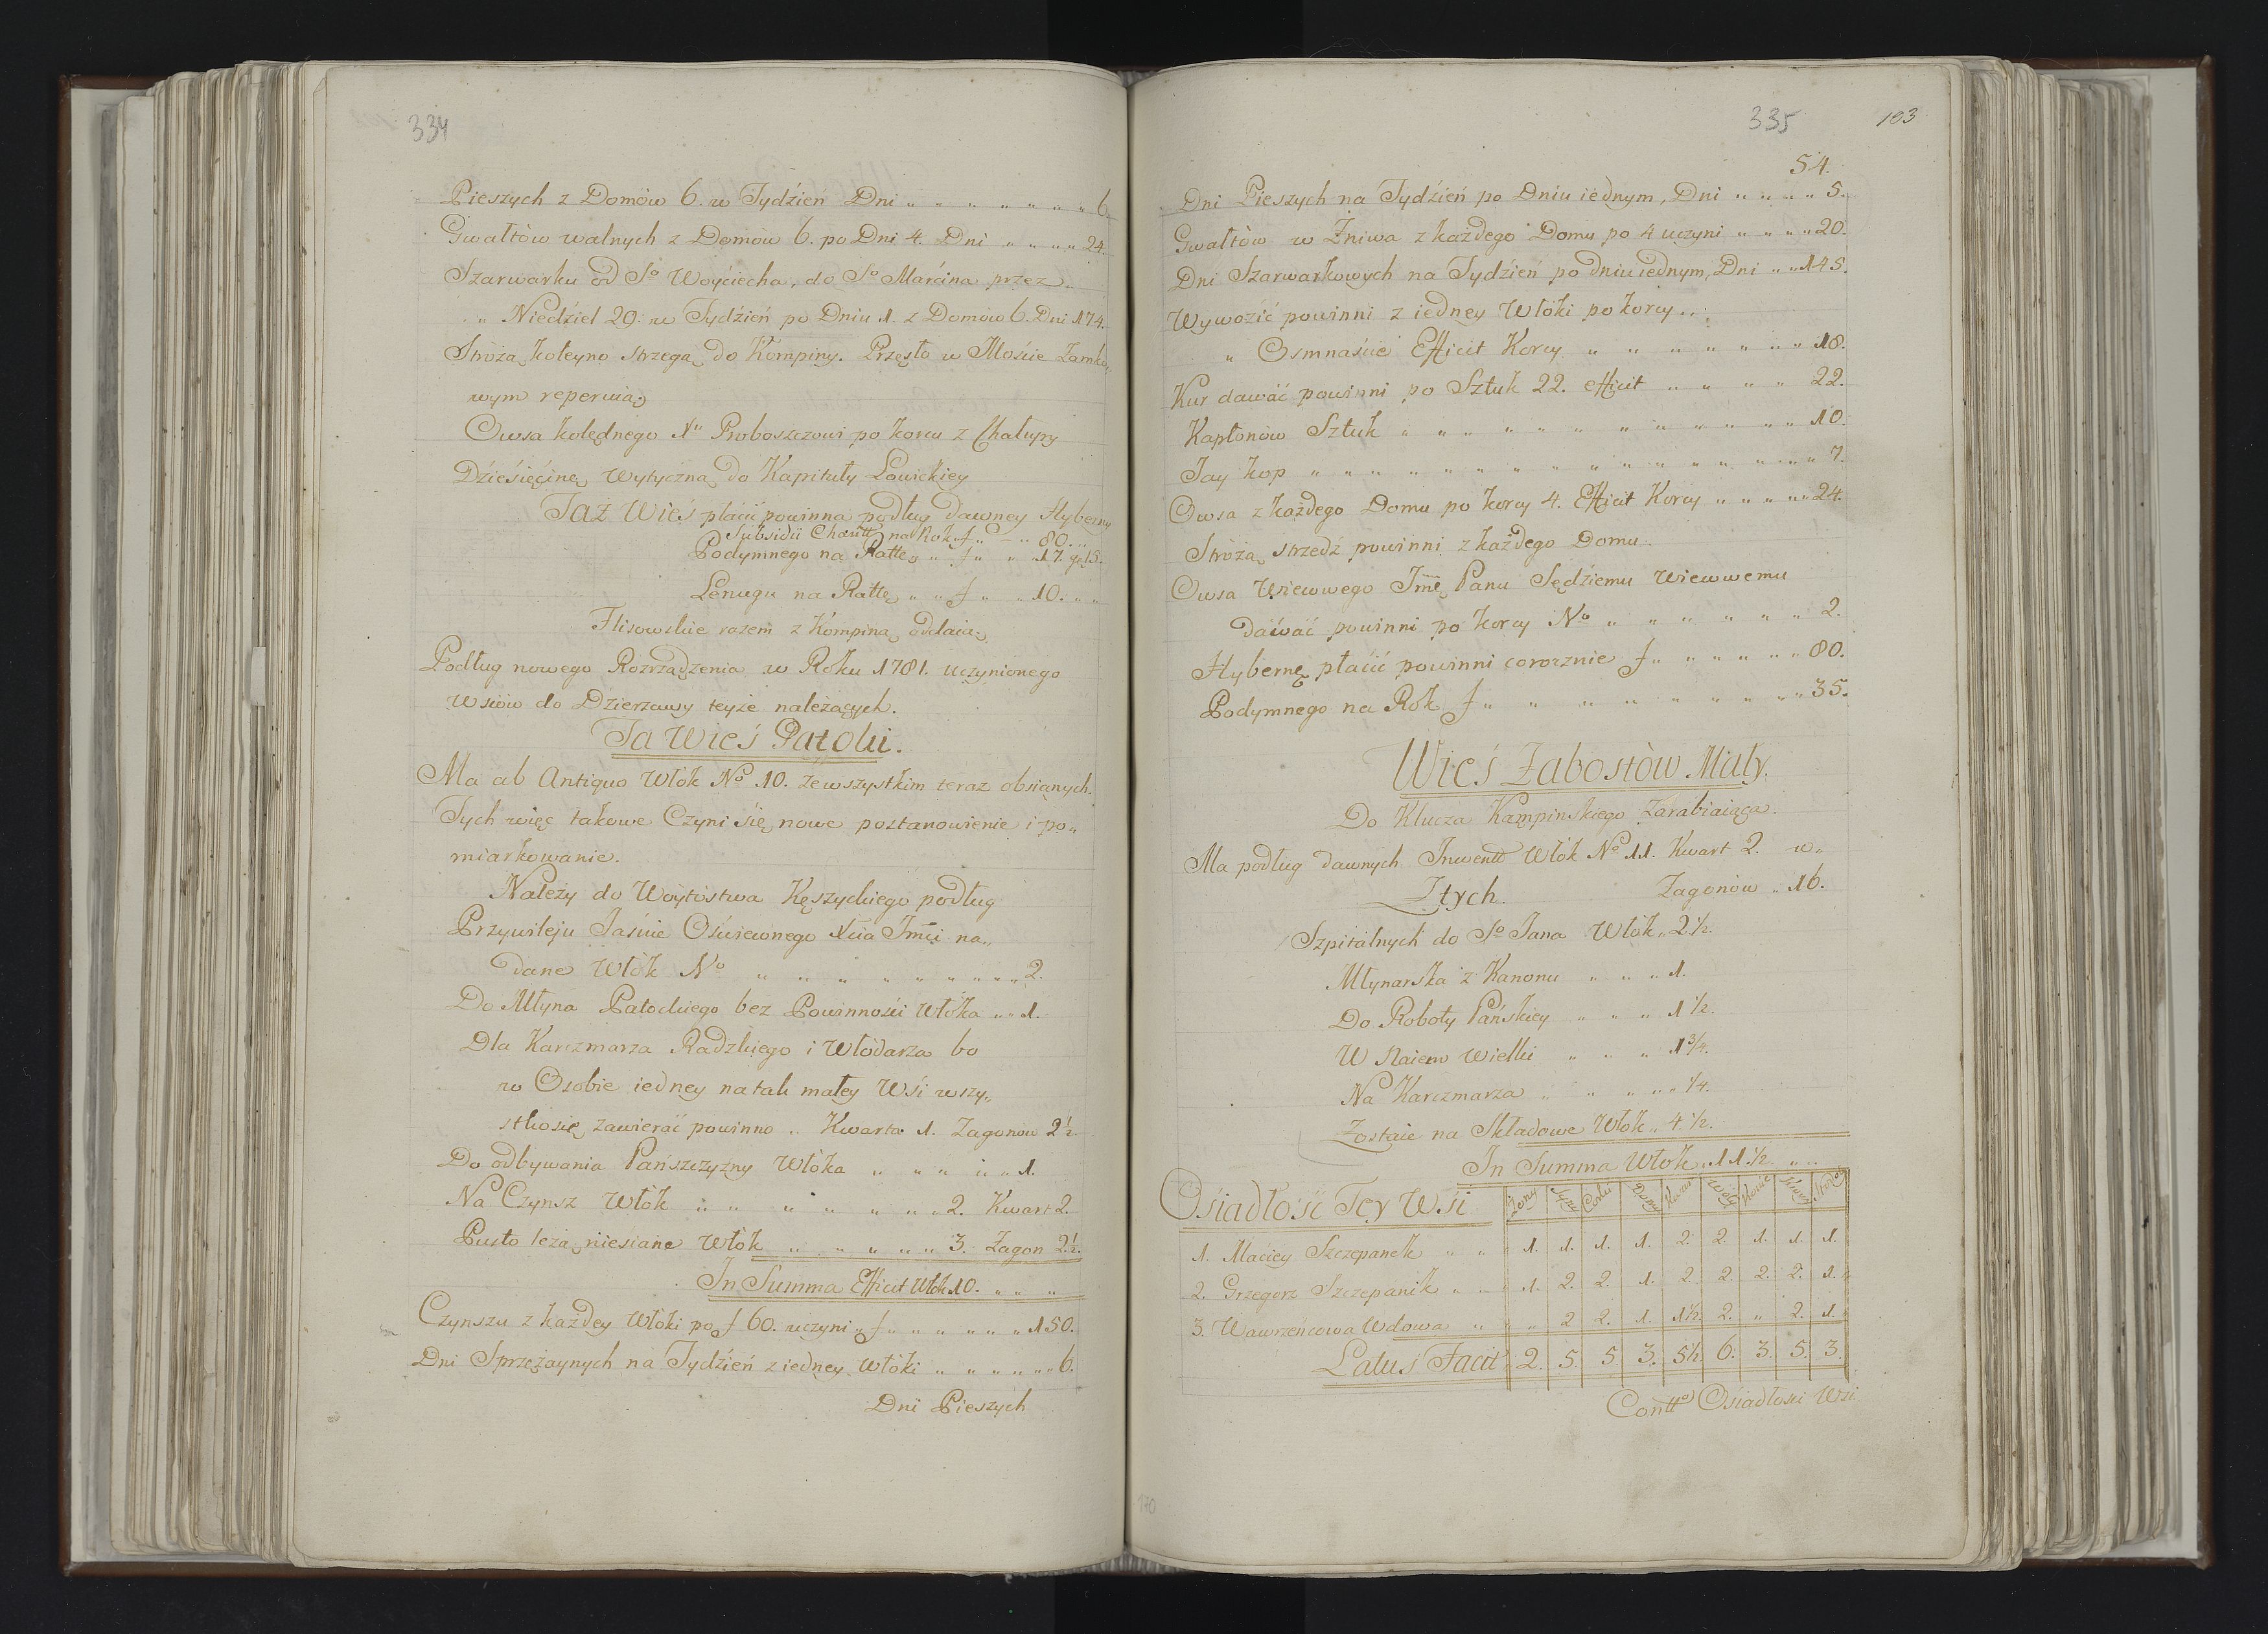 334
Pieszych z Domów 6. w Tydźień Dni „ „ „ „ „ „ „ 6.
Gwałtów walnych z Domów 6. po Dni 4. Dni „ „ „ „ 24.
Szarwarku od Sº Woyćiecha, do Sº Marćina przez
„ Niedźiel 29. w Tydźień po Dniu 1. z Domów 6. Dni 174.
Stróżą koleyno strzegą do Kompiny. Przęsło w Mośćie Zamko„
wym reperuią
Owsa kolędnego Xu Proboszczowi po korcu z Chałupy
Dźieśięćinę Wytyczną do Kapituły Łowickiey
Taż Wieś płaćić powinna podług dawney Hyberny
Subsidii Charitt na Rok f „ – „ 80. „
Podymnego na Rattę „ „ f „ „ 17. gr 15.
Lenugu na Rattę „ „ f „ „ 10. „ „
Flisowskie razem z Kompiną oddaią
Podług nowego Rozrządzenia w Roku 1781. uczynionego
Wśiów do Dzierzawy teyże należących.
Ta Wieś Patoki.
Ma ab Antiquo Włók Nº 10. ze wszystkim teraz obsianych.
Tych więc takowe Czyni śię nowe postanowienie i po„
miarkowanie.
Należy do Woytostwa Kęszyckiego podług
Przywileju Jaśnie Oświeconego Xcia Jmći na„
dane Włók Nº „ „ „ „ „ „ „ „ „ 2.
Do Młyna Patockiego bez Powinnośći Włóka „ „ 1.
Dla Karczmarza Radzkiego i Włodarza bo
w Osobie iedney na tak małey Wśi wszy„
stko się zawierać powinno „ Kwarta 1. Zagonów 2½.
Do odbywania Pańszczyzny Włóka „ „ „ „ „ 1.
Na Czynsz Włók „ „ „ „ „ „ „ 2. Kwart 2.
Pusto leżą niesiane Włók „ „ „ „ „ 3. Zagon 2½.
In Summa Efficit Włók 10. „ „ „
Czynszu z każdey Włóki po f 60. uczyni „ f „ „ „ „ „ „ 150.
Dni Sprzężaynych na Tydźień z iedney Włóki „ „ „ „ „ „ 6.
Dni Pieszych
335
103
54.
Dni Pieszych na Tydźień po Dniu iednym, Dni „ „ „ „ 5.
Gwałtów w Żniwa z każdego Domu po 4 uczyni „ „ „ „ 20.
Dni Szarwarkowych na Tydźień po dniu iednym, Dni „ „ 145.
Wywozić powinni z iedney Włóki po korcy „
„ Osmnaśćie Efficit Korcy „ „ „ „ „ „ „ 18.
Kur dawać powinni po Sztuk 22. efficit „ „ „ „ 22.
Kapłonów Sztuk „ „ „ „ „ „ „ „ „ „ „ „ 10.
Jay kop „ „ „ „ „ „ „ „ „ „ „ „ „ „ „ 7.
Owsa z każdego Domu po korcy 4. Efficit Korcy „ „ „ „ „ 24.
Stróżą strzedz powinni z każdego Domu.
Owsa Wiewwego Jmć Panu Sędziemu Wiewwemu
dawać powinni po korcy Nº „ „ „ „ „ „ 2.
Hybernę płaćić powinni corocznie f „ „ „ „ „ „ 80.
Podymnego na Rok f „ „ „ „ „ „ „ „ „ 35.
Wieś Zabostòw Mały.
Do Klucza Kąmpinskiego Zarabiaiąca.
Ma podług dawnych Inwentt Włók Nº 11. Kwart 2. w„
Ztych. Zagonòw „ 16.
Szpitalnych do Sº Jana Włók „ 2½.
Młynarska z Kanonu „ „ „ 1.
Do Roboty Pańskiey „ „ „ 1½.
W Naiem Wielki „ „ „ 1¾.
Na Karczmarza „ „ „ „ „ ¼.
Zostaie na Składowe Włók „ 4.½.
In Summa Włók „ 11½. „ „
Ośiadłość Tey Wśi Żony Syny Corki Domy Konie Woły Krowy
1. Maciey Szczepanek „ „ 1. 1. 1. 1. 2. 2. 1. 1. 1.
2. Grzegorz Szczepanik „ „ 1. 2. 2. 1. 2. 2. 2. 2. 1.
3. Wawrzeńcowa Wdowa „ „ „ 2 2. 1. 1½ 2. „ 2. 1.
Latus Facit 2. 5. 5. 3. 5½. 6. 3. 5. 3.
Contt Ośiadłości Wsi
170